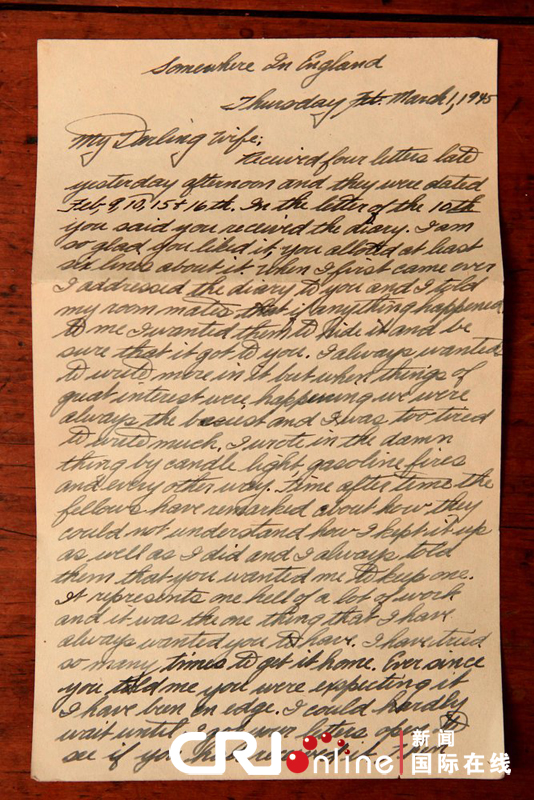 Somewhere In England
Thursday Feb. March 1, 1945
My Darling Wife;
Received four letters late
yesterday afternoon and they were dated
Feb, 9, 10, 15 + 16th. In the letter of the 10th
you said you received the diary. I am
so glad you liked it, you alloted at least
six lines about it. When I first came over
I addressed the diary to you and I told
my room mates that if anything happened
to me I wanted them to hide it and be
sure that it got to you. I always wanted
to write more in it but when things of
great interest were happening we were
always the busiest and I was too tired
to write much. I wrote in the damn
thing by candle light, gasoline fires
and every other way. Time after time the
fellows have remarked about how they
could not understand how I kept it up
as well as I did and I always told
them that you wanted me to keep one.
It represents one hell of a lot of work
and it was the one thing that I have
always wanted you to have. I have tried
so many times to get it home. Ever since
you told me you were expecting it
I have been on edge. I could hardly
wait until your letters open to
see if you had received it
CRI Online 新闻
国际在线